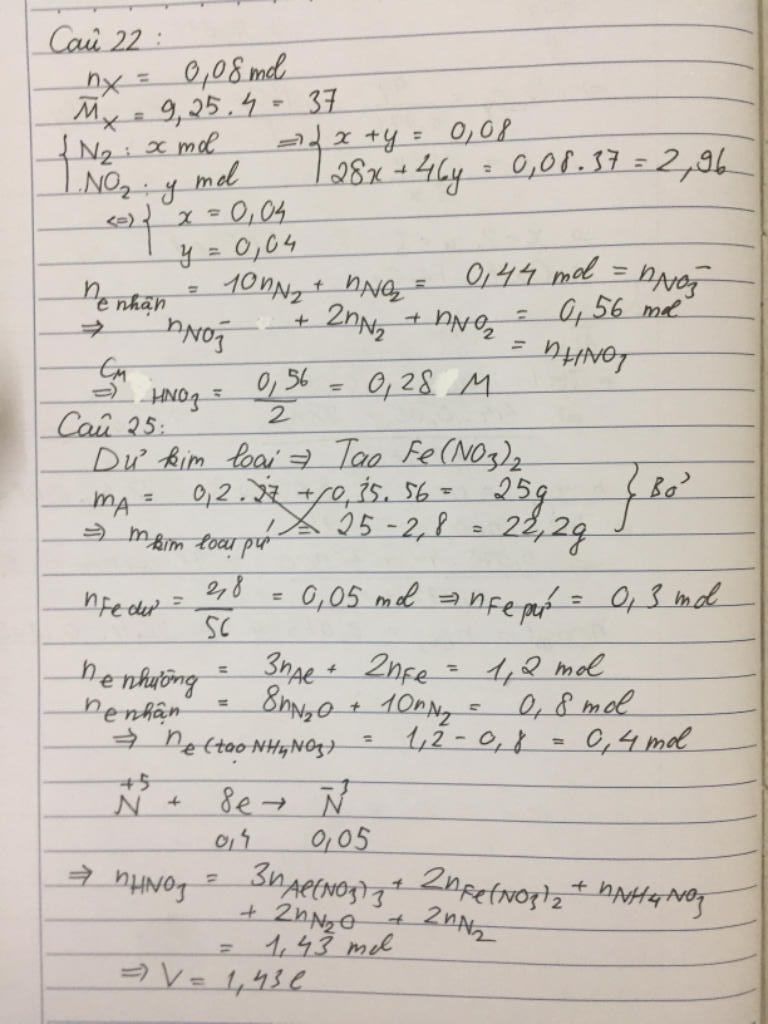 Câu 22 :
nX = 0,08 mol
M̄X = 9,25.4 = 37
{ N2 : x mol ⇒ { x + y = 0,08
NO2 : y mol 28x + 46y = 0,08.37 = 2,96
⇔ { x = 0,04
y = 0,04
ne nhận = 10nN2 + nNO2 = 0,44 mol = nNO3-
⇒ nNO3- + 2nN2 + nNO2 = 0,56 mol
= nHNO3
⇒ CM HNO3 = 0,56/2 = 0,28 M
Câu 25:
Dư kim loại ⇒ Tạo Fe(NO3)2
mA = 0,2.27 + 0,35.56 = 25g } Bỏ
⇒ mkim loại pứ = 25 - 2,8 = 22,2g
nFe dư = 2,8/56 = 0,05 mol ⇒ nFe pứ = 0,3 mol
ne nhường = 3nAl + 2nFe = 1,2 mol
ne nhận = 8nN2O + 10nN2 = 0,8 mol
⇒ ne (tạo NH4NO3) = 1,2 - 0,8 = 0,4 mol
+5 -3
N + 8e → N
0,4 0,05
⇒ nHNO3 = 3nAl(NO3)3 + 2nFe(NO3)2 + nNH4NO3
+ 2nN2O + 2nN2
= 1,43 mol
⇒ V = 1,43l